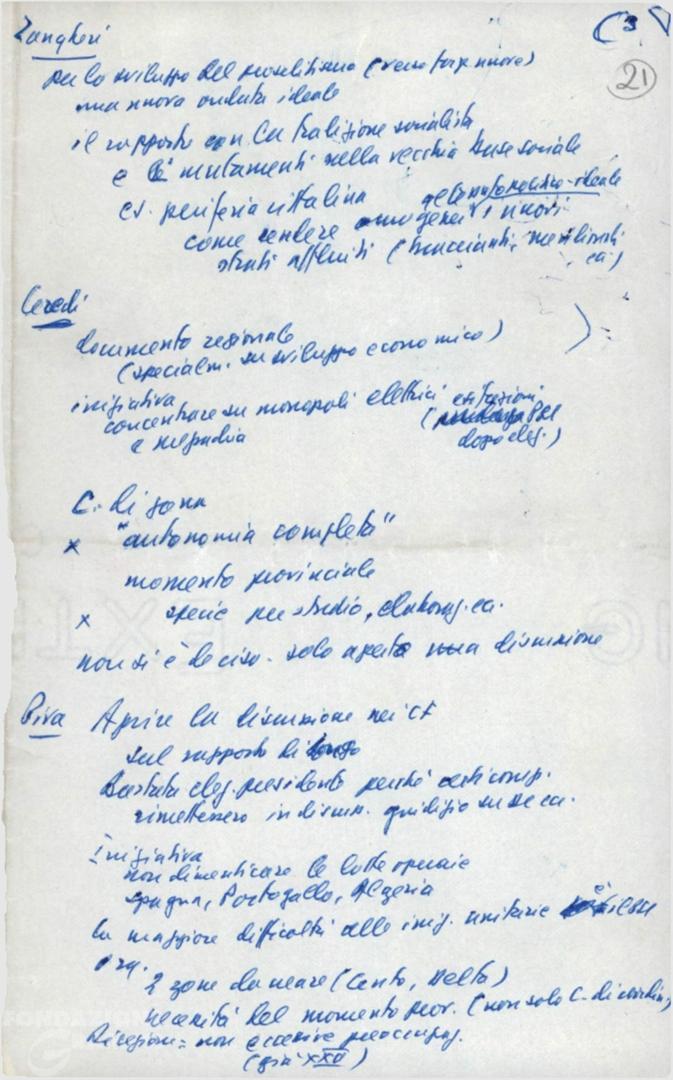 Zangheri
(3
21
per lo sviluppo del proselitismo (verso forze nuove)
una nuova ondata ideale
il rapporto con la tradizione socialista
e i mutamenti nella vecchia base sociale
es. periferia cittadina
politico-ideale
come rendere omogenei i nuovi
strati affluiti (braccianti, meridionali
ec.)
Ceredi
documento regionale
(specialm. su sviluppo economico)
iniziativa
concentrare su monopoli elettrici
e mezzadria
dopo eleg.)
C. di zona
x "autonomia completa"
momento provinciale
x specie per studio, elaboraz. ec.
non si è deciso. solo aperto una discussione
Piva Aprire la discussione nei CF
sul rapporto di Longo
bastata eleg. presidente perché certi comp.
rimettessero in discuss. giudizio su DC ec.
Iniziativa
non dimenticare le lotte operaie
Spagna, Portogallo, Algeria
la maggiore difficoltà alle iniz. unitarie è
org.
2 zone da creare (Cento, Delta)
necessità del momento prov. (non solo C. di
Direzione = non eccessive preoccupaz.
(già XXV)
FONDAZIONE
G